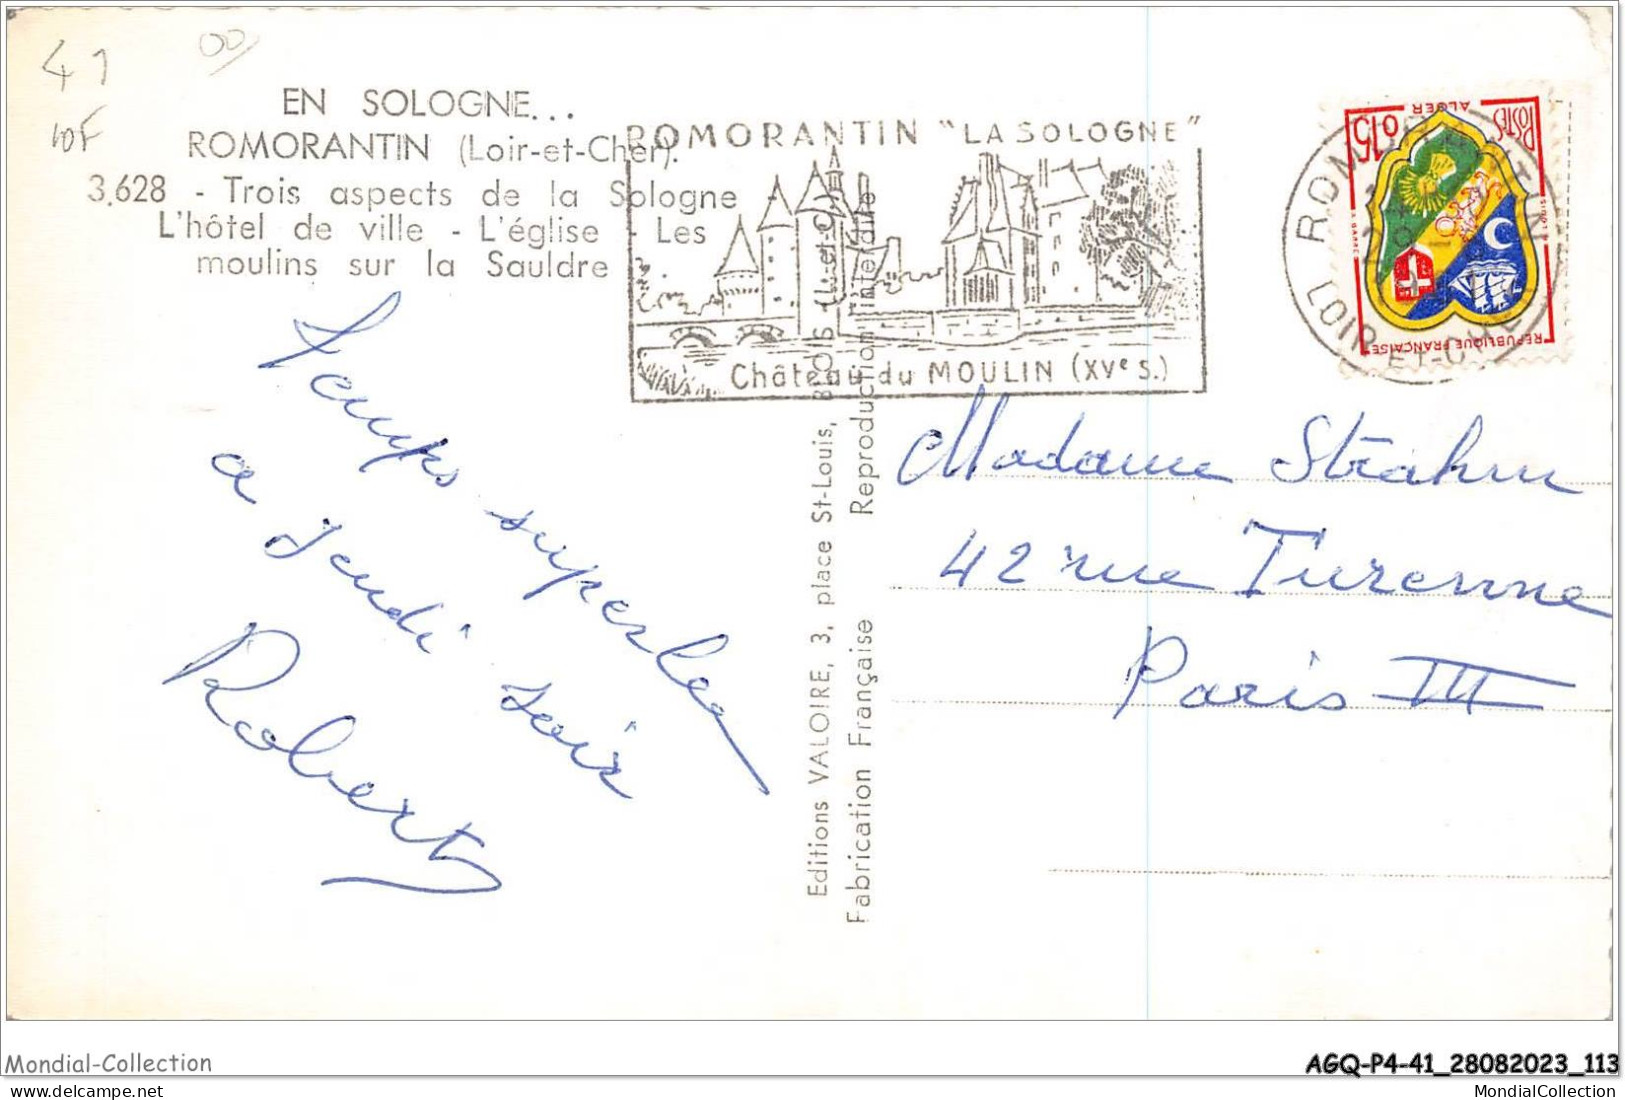 41
10F
EN SOLOGNE...
ROMORANTIN (Loir-et-Cher).
3.628 - Trois aspects de la Sologne -
L'hôtel de ville - L'église - Les
moulins sur la Sauldre .
ROMORANTIN "LA SOLOGNE"
Château du MOULIN (XVe S.)
ROMORANTIN
LOIR-ET-CHER
0,15
POSTES
ALGER
REPUBLIQUE FRANÇAISE
Temps superbe
a Jeudi soir
Robert
Editions VALOIRE, 3, place St-Louis, BLOIS (L.-et-Cher)
Fabrication Française Reproduction interdite
Madame Strahm
42 rue Turenne
Paris III
Mondial-Collection
AGQ-P4-41_28082023_113
MondialCollection
MondialCollection